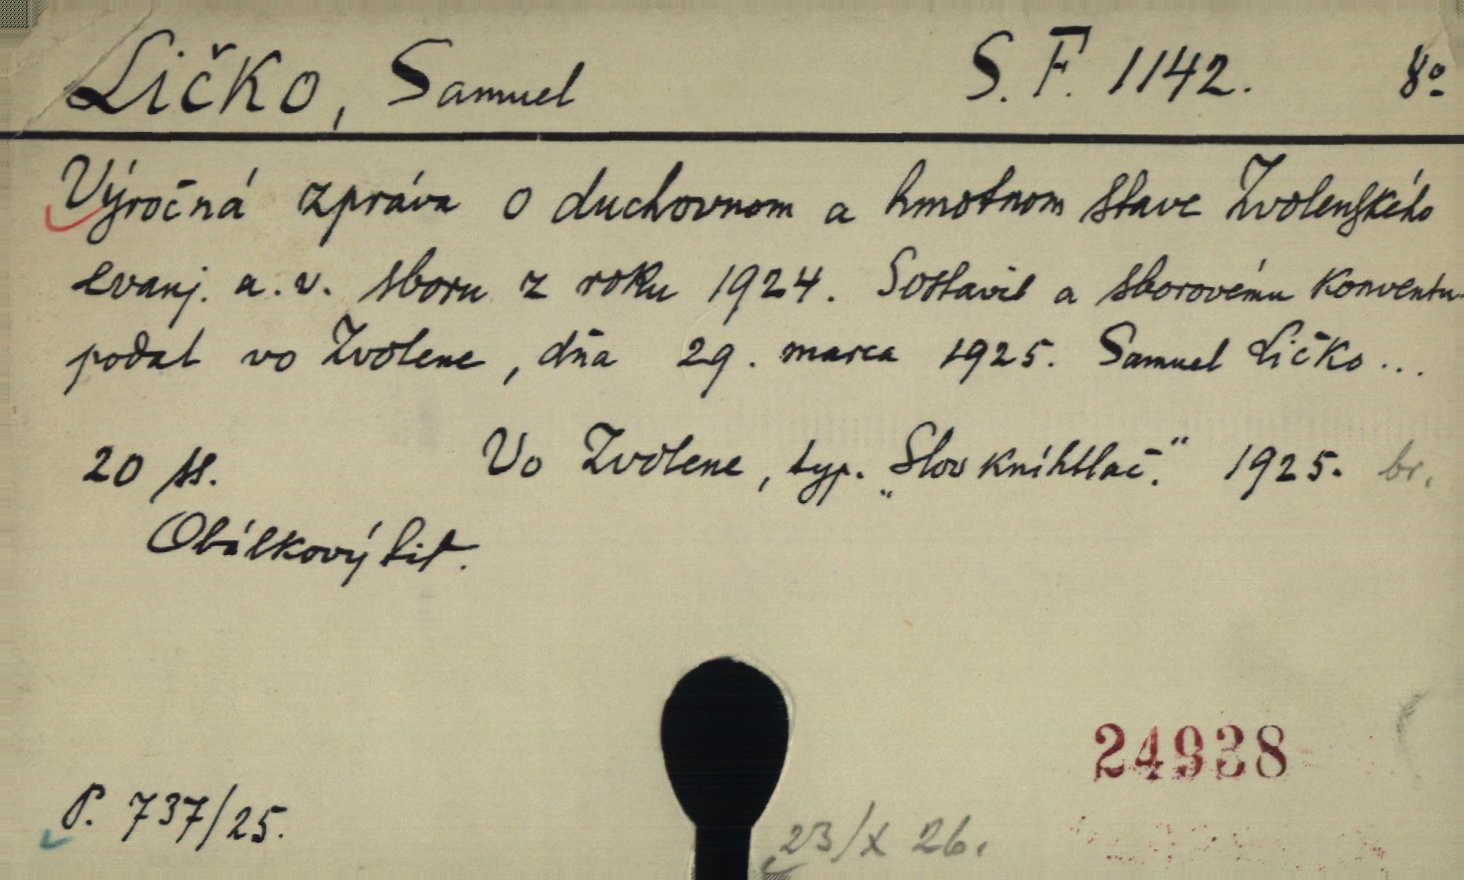 Ličko, Samuel S. F. 1142. 8º
Výročná zpráva o duchovnom a hmotnom stave Zvolenského
evanj. a. v. sboru z roku 1924. Sostavil a sborovému konventu
podal vo Zvolene, dňa 29. marca 1925. Samuel Ličko...
20 ss. Vo Zvolene, typ. „Slov kníhtlač.“ 1925. br.
Obálkový tit.
24938
P. 737/25.
23/X 26.